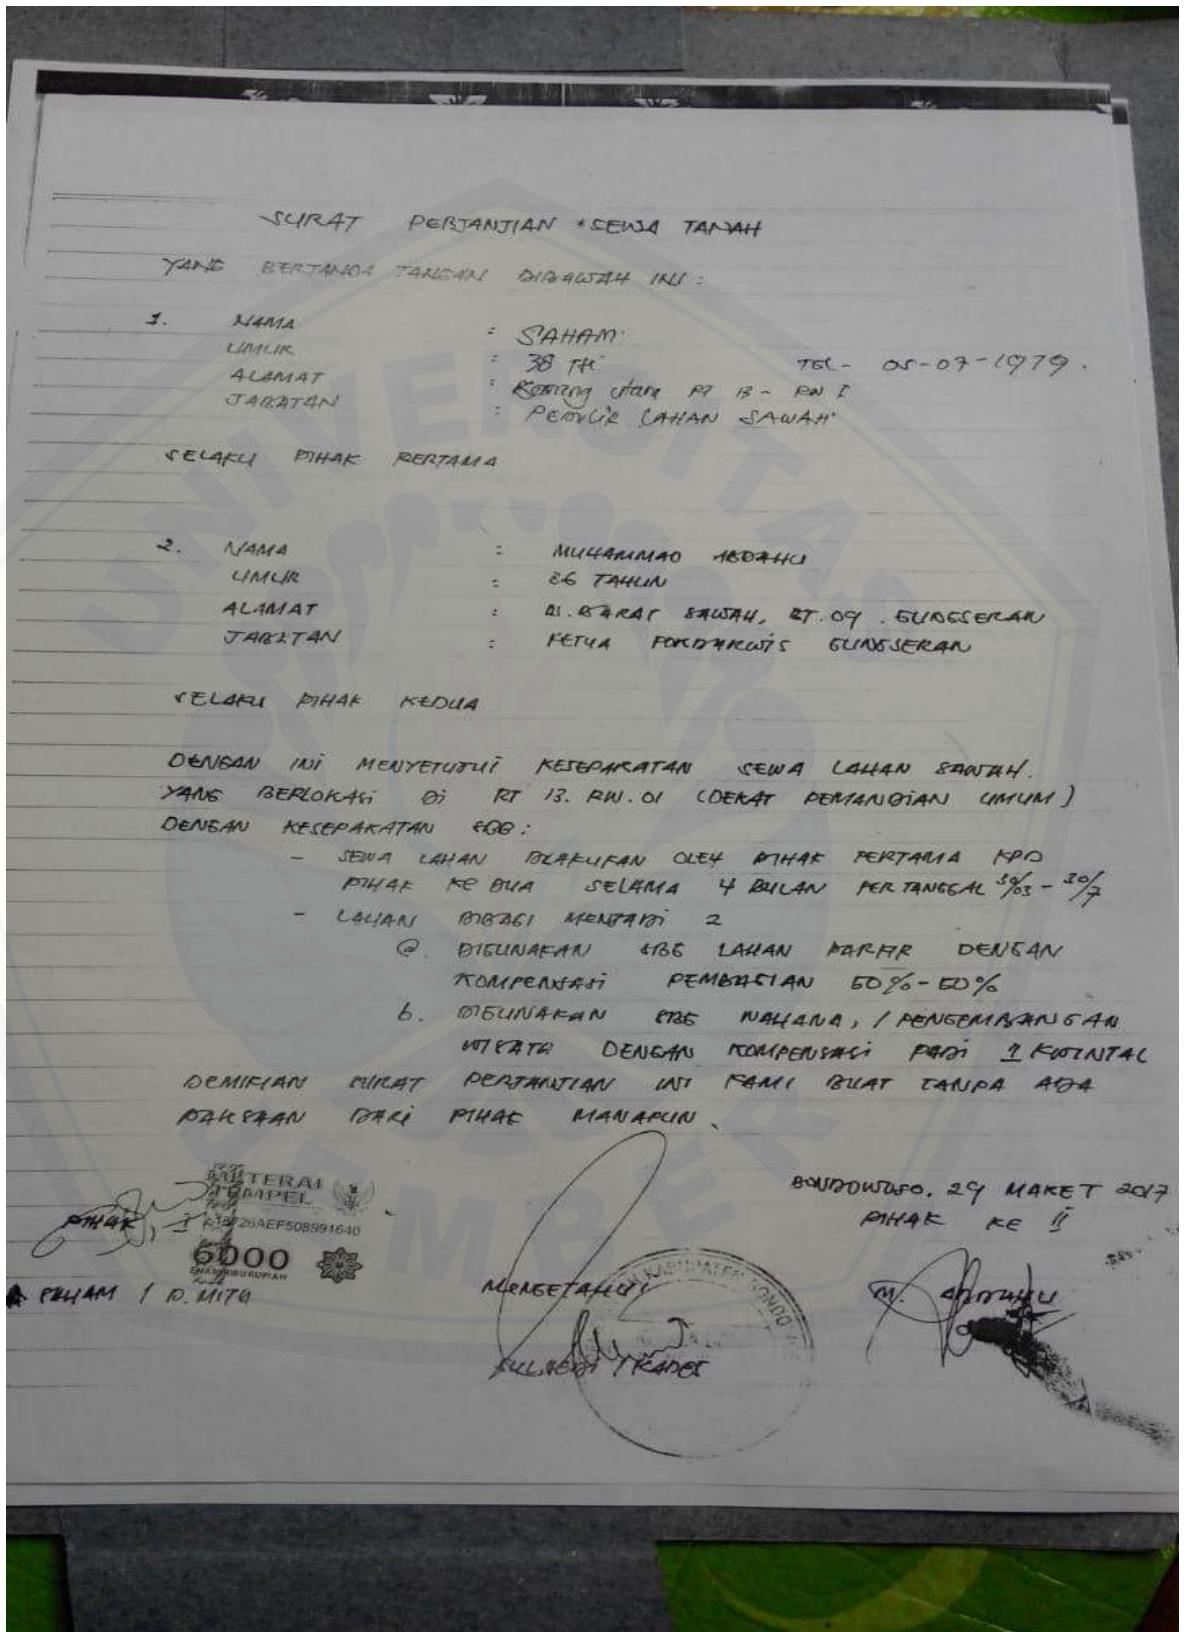 SURAT PERJANJIAN SEWA TANAH
YANG BERTANDA TANGAN DIBAWAH INI :
1. NAMA : SAHAM
UMUR : 38 TH TGL - 05-07-1979.
ALAMAT : Utara RT 13 - RW I
JABATAN : PEMILIK LAHAN SAWAH
SELAKU PIHAK PERTAMA
2. NAMA : MUHAMMAD ABDAHU
UMUR : 26 TAHUN
ALAMAT : BARAT SAWAH, RT. 09 . GUNGSERAN
JABATAN : KETUA POKDARWIS GUNGSERAN
SELAKU PIHAK KEDUA
DENGAN INI MENYETUJUI KESEPAKATAN SEWA LAHAN SAWAH.
YANG BERLOKASI DI RT 13. RW. 01 (DEKAT PEMANDIAN UMUM)
DENGAN KESEPAKATAN SBB :
- SEWA LAHAN DILAKUKAN OLEH PIHAK PERTAMA KPD
PIHAK KE DUA SELAMA 4 BULAN PER TANGGAL 30/03 - 30/7
- LAHAN DIBAGI MENJADI 2
@. DIGUNAKAN SBG LAHAN PARKIR DENGAN
KOMPENSASI PEMBAGIAN 50% - 50%
b. DIGUNAKAN SBG WAHANA, / PENGEMBANGAN
WISATA DENGAN KOMPENSASI PADI 1 KWINTAL
DEMIKIAN SURAT PERJANJIAN INI KAMI BUAT TANPA ADA
PAKSAAN DARI PIHAK MANAPUN.
BONDOWOSO, 29 MARET 2017
PIHAK I
PIHAK KE II
METERAI
TEMPEL
AEF508991640
6000
ENAM RIBU RUPIAH
SAHAM / P. MITA
MENGETAHUI
KABUPATEN BONDO
M. ABDAHU
/ KADES
UNIVERSITAS JEMBER